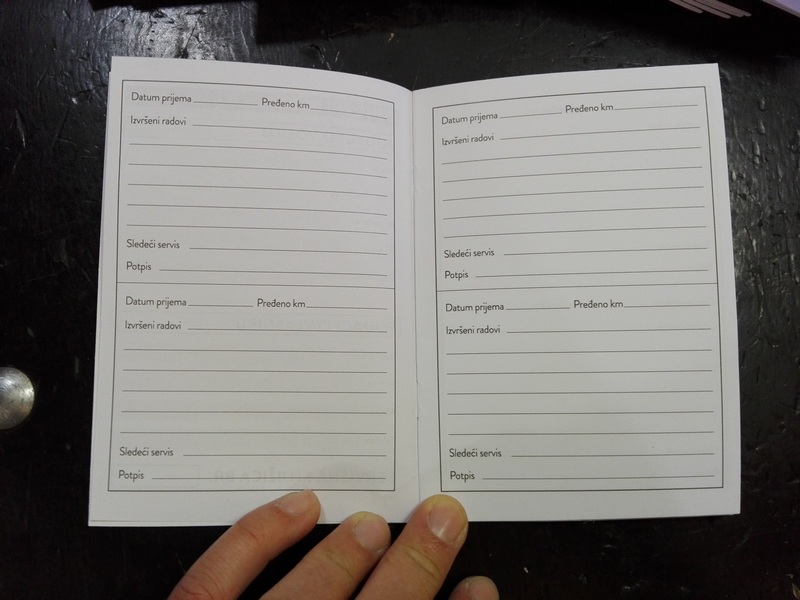 Datum prijema Pređeno km
Izvršeni radovi
Sledeći servis
Potpis
Datum prijema Pređeno km
Izvršeni radovi
Sledeći servis
Potpis
Datum prijema Pređeno km
Izvršeni radovi
Sledeći servis
Potpis
Datum prijema Pređeno km
Izvršeni radovi
Sledeći servis
Potpis